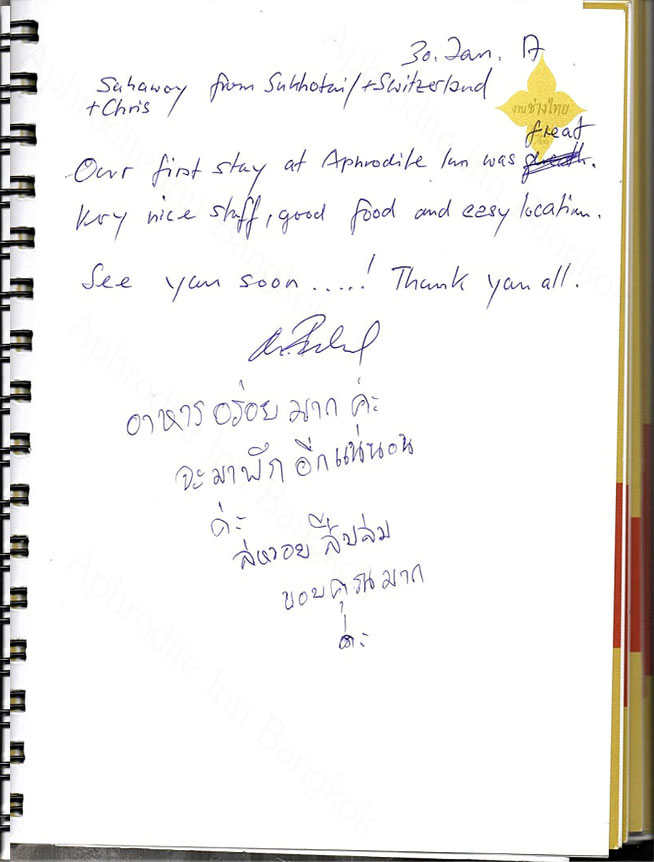 30. Jan. 17
Sahawoy from Sukhotai/+Switzerland
+Chris
งานช่างไทย
great
Our first stay at Aphrodite Inn was
Very nice staff, good food and easy location.
See you soon .....! Thank you all.
อาหารอร่อยมากค่ะ
จะมาพักอีกแน่นอน
ค่ะ
ขอบคุณมาก
ค่ะ
Aphrodite Inn Bangkok